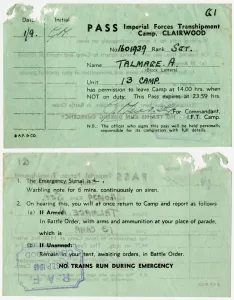 G1
Date. Initial
1/9.
PASS Imperial Forces Transhipment
Camp. CLAIRWOOD
No 1601939 Rank SGT.
Name TALMAGE. A.
(Block Letters)
Unit 13 CAMP.
has permission to leave Camp at 14.00 hrs. when
NOT on duty. This Pass expires at 23.59 hrs.
For Commandant.
I.F.T. Camp.
N.B. The officer who signs this pass will be held personally
responsible for its completion with full details.
B.A.P. & CO.
1. The Emergency Signal is:—
Warbling note for 6 mins. continuously on siren.
2. On hearing this, you will at once return to Camp and report as follows
(a) If Armed:
In Battle Order, with arms and ammunition at your place of parade,
which is
(b) If Unarmed:
Remain in your tent, awaiting orders, in Battle Order.
NO TRAINS RUN DURING EMERGENCY
R.A.F.